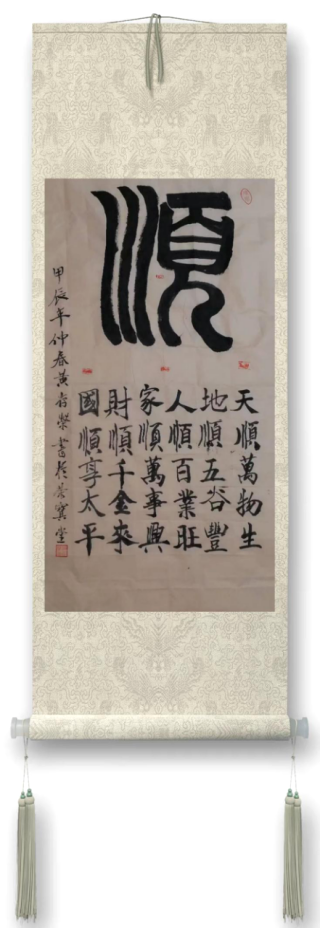 順
天順萬物生
地順五谷豐
人順百業旺
家順萬事興
財順千金來
國順享太平
甲辰年仲春黃
書於
堂